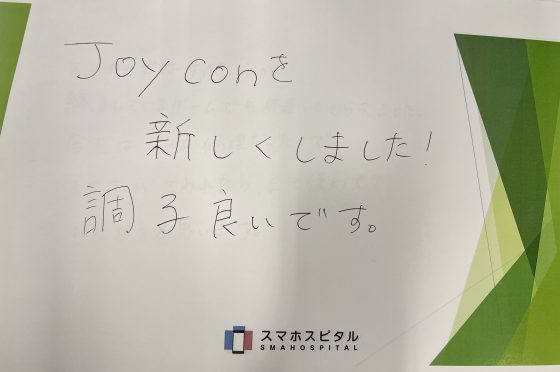 Joy conを
新しくしました!
調子良いです。
スマホスピタル
SMAHOSPITAL